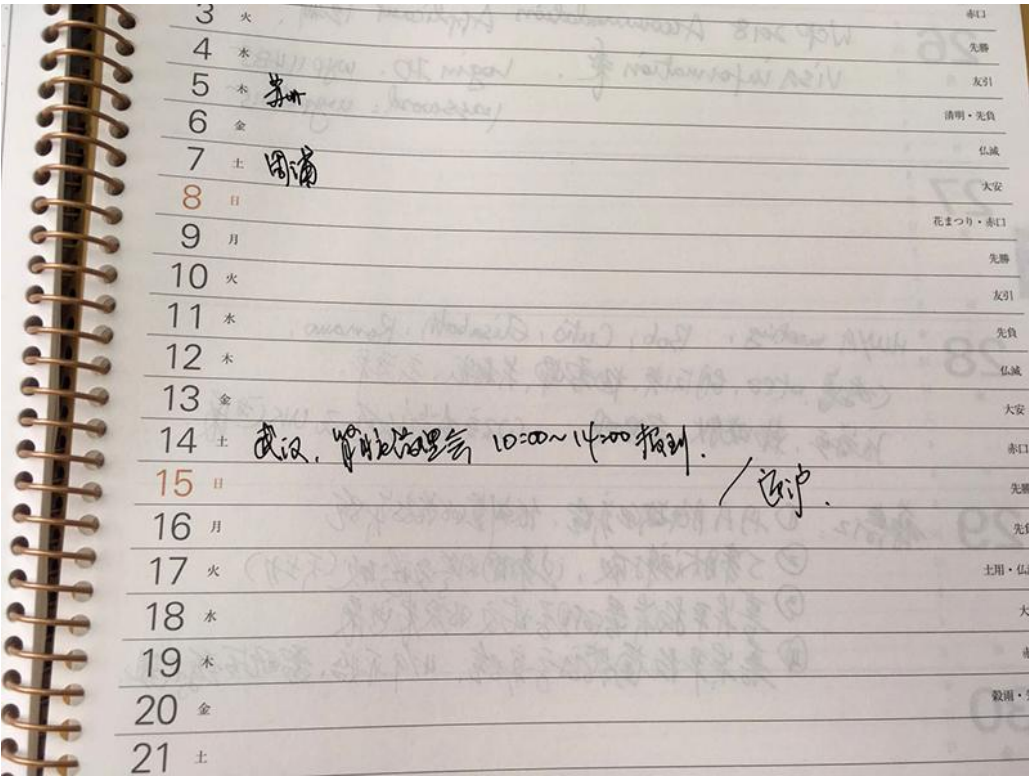 3 火 赤口
4 水 先勝
5 木 苏州 友引
6 金 清明・先負
7 土 周浦 仏滅
8 日 大安
9 月 花まつり・赤口
10 火 先勝
11 水 友引
12 木 先負
13 金 仏滅
14 土 武汉, 10:00~14:00 报到. 大安
15 日 / 返沪. 赤口
16 月 先勝
17 火
18 水 土用・仏
19 木 大
20 金
21 土 穀雨・